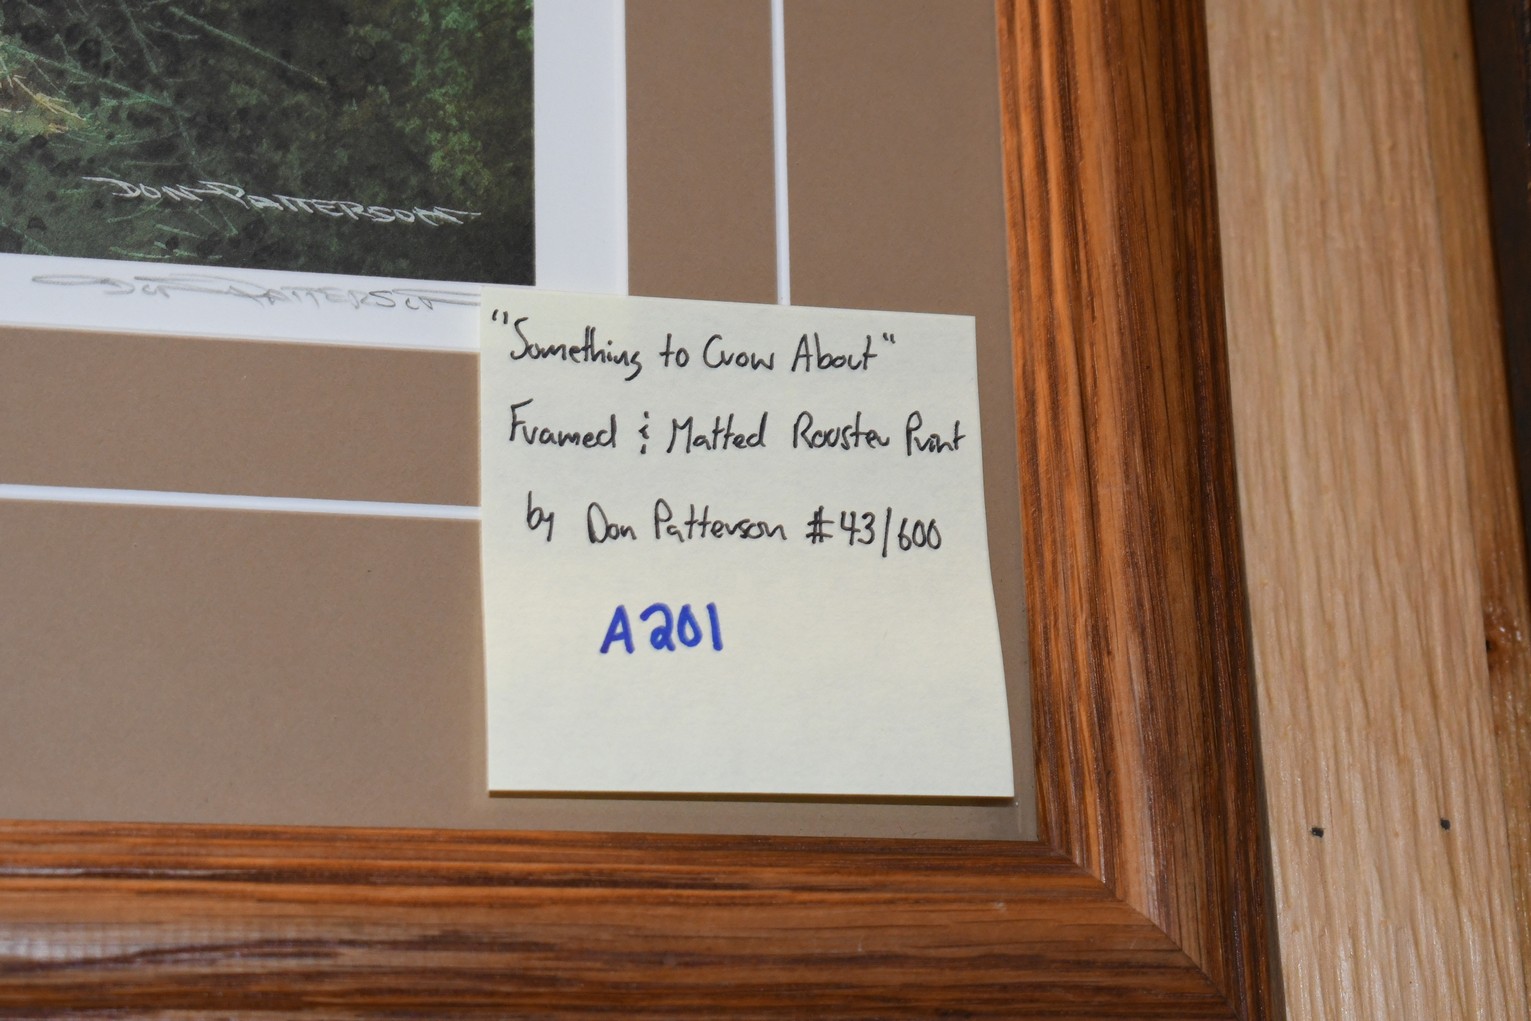 DON PATTERSON
Don Patterson
"Something to Crow About"
Framed & Matted Rooster Print
by Don Patterson #43/600
A201